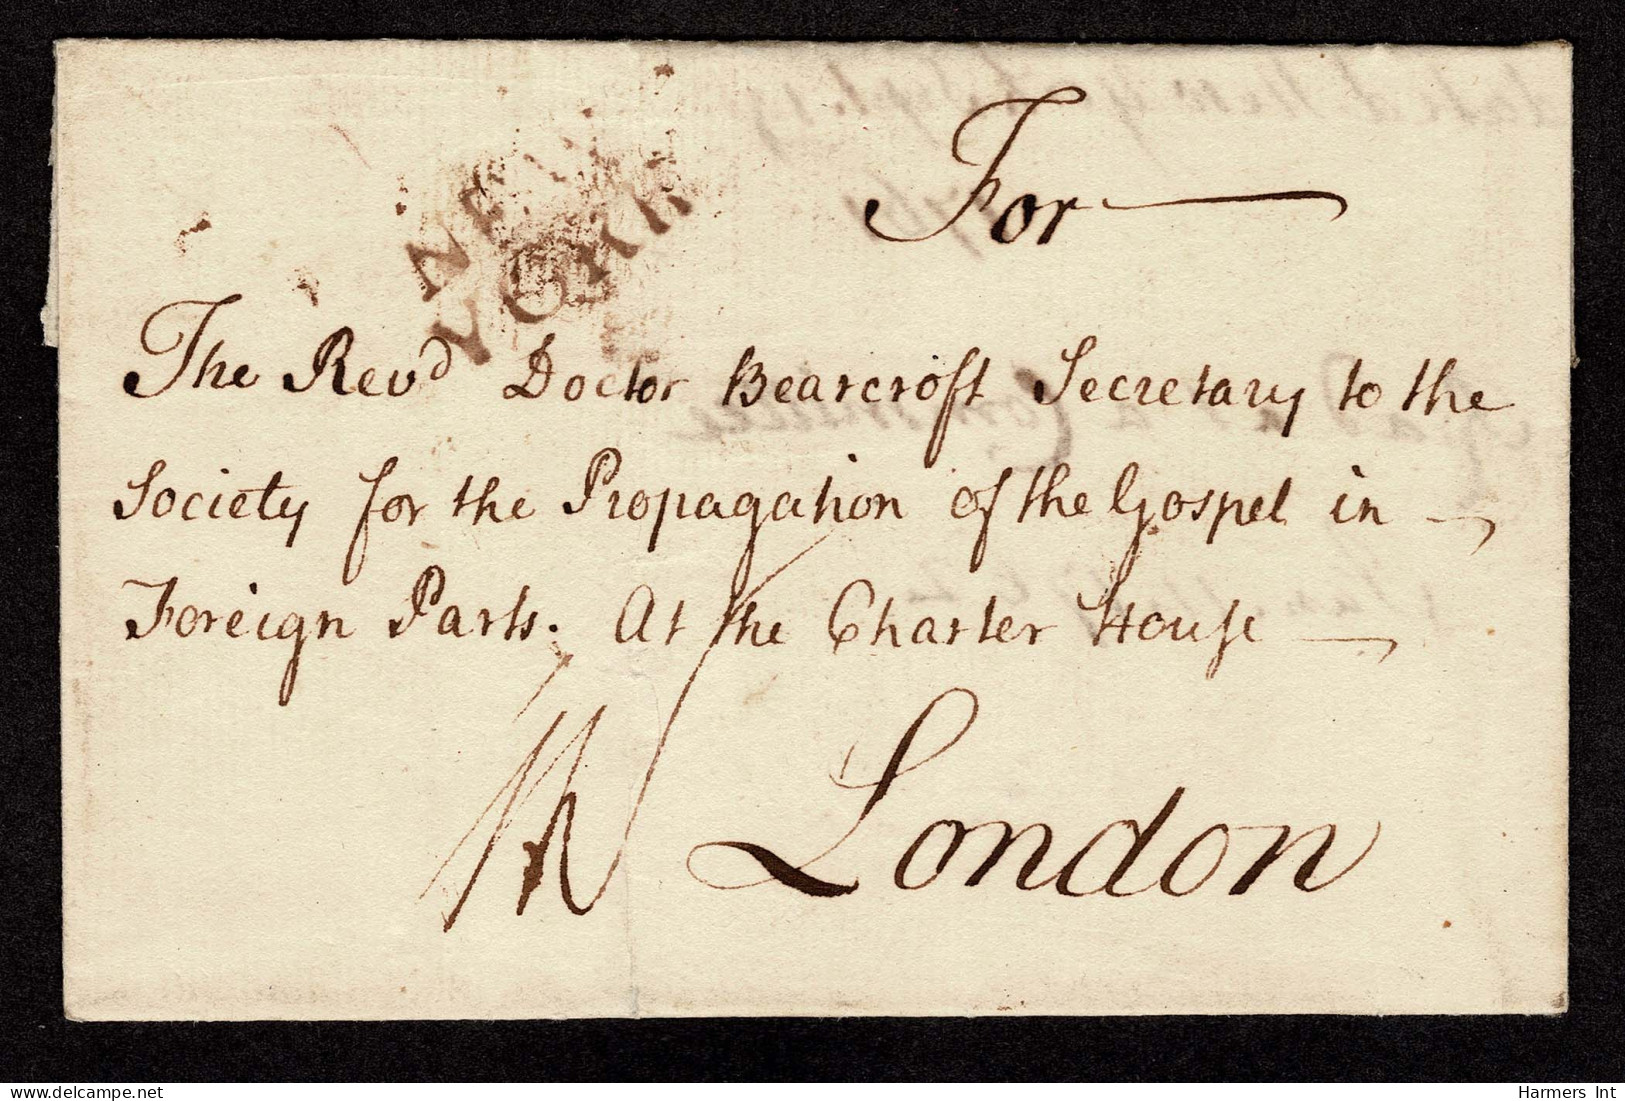 NEW
YORK
For
The Revd Doctor Bearcroft Secretary to the
Society for the Propagation of the Gospel in
Foreign Parts. At the Charter House
London
Harmers Int